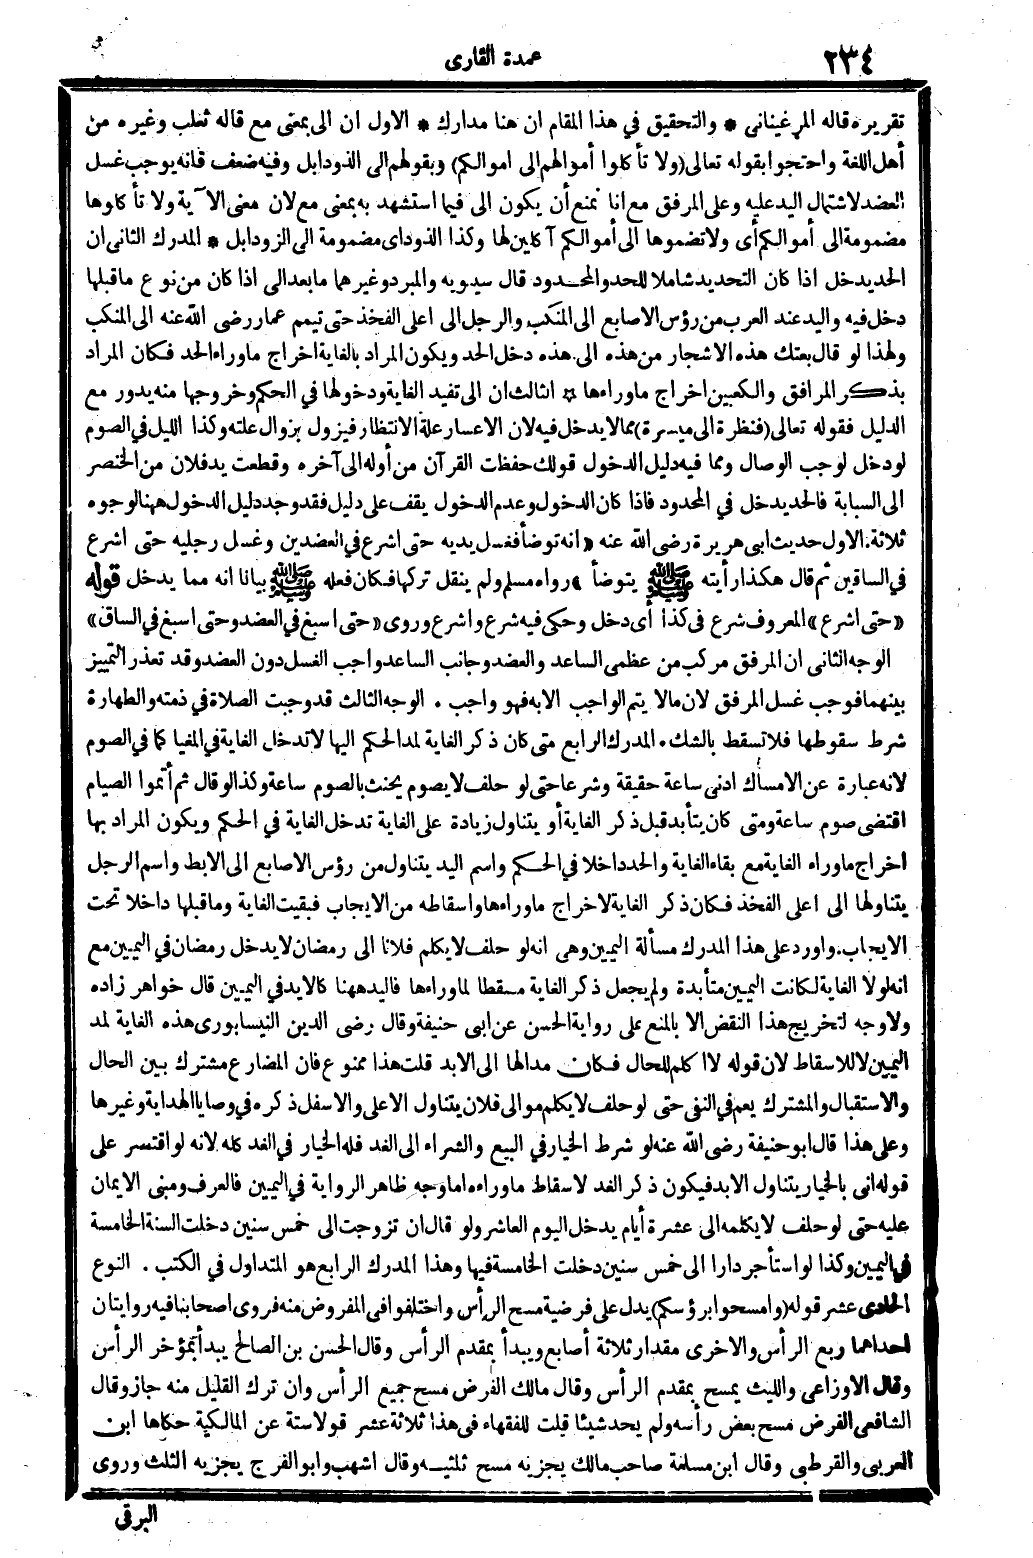 ٢٣٤
عمدة القارى
تقريره قاله المرغينانى * والتحقيق في هذا المقام ان هنا مدارك * الاول ان الى بمعنى مع قاله ثعلب وغيره من
أهل اللغة واحتجوا بقوله تعالى (ولا تأكلوا أموالهم الى اموالكم) وبقولهم الى الذود ابل وفيه ضعف فانه يوجب غسل
العضد لاشتمال اليد عليه وعلى المرفق مع انا نمنع أن يكون الى فيما استشهد به بمعنى مع لان معنى الآية ولا تأكلوها
مضمومة الى أموالكم أى ولا تضموها الى أموالكم آكلين لها وكذا الذود اى مضمومة الى الزود ابل * المدرك الثانى ان
الحد يدخل اذا كان التحديد شاملا للحد والمحدود قال سيبويه والمبرد وغيرهما ما بعد الى اذا كان من نوع ما قبلها
دخل فيه واليد عند العرب من رؤس الاصابع الى المنكب والرجل الى اعلى الفخذ حتى تيمم عمار رضى الله عنه الى المنكب
ولهذا لو قال بعتك هذه الاشجار من هذه الى هذه دخل الحد ويكون المراد بالغاية اخراج ما وراء الحد فكان المراد
بذكر المرافق والكعبين اخراج ما وراءها * الثالث ان الى تفيد الغاية ودخولها في الحكم وخروجها منه يدور مع
الدليل فقوله تعالى (فنظرة الى ميسرة) مما لا يدخل فيه لان الاعسار علة الانتظار فيزول بزوال علته وكذا الليل في الصوم
لو دخل لوجب الوصال ومما فيه دليل الدخول قولك حفظت القرآن من أوله الى آخره وقطعت يد فلان من الخنصر
الى السبابة فالحد يدخل في المحدود فاذا كان الدخول وعدم الدخول يقف على دليل فقد وجد دليل الدخول ههنا لوجوه
ثلاثة. الاول حديث ابى هريرة رضى الله عنه «انه توضأ فغسل يديه حتى اشرع في العضدين وغسل رجليه حتى اشرع
في الساقين ثم قال هكذا رأيته ﷺ يتوضأ» رواه مسلم ولم ينقل تركها فكان فعله ﷺ بيانا انه مما يدخل قوله
«حتى اشرع» المعروف شرع فى كذا أى دخل وحكى فيه شرع واشرع وروى «حتى اسبغ في العضد وحتى اسبغ في الساق»
الوجه الثانى ان المرفق مركب من عظمى الساعد والعضد وجانب الساعد واجب الغسل دون العضد وقد تعذر التمييز
بينهما فوجب غسل المرفق لان مالا يتم الواجب الا به فهو واجب . الوجه الثالث قد وجبت الصلاة في ذمته والطهارة
شرط سقوطها فلا تسقط بالشك. المدرك الرابع متى كان ذكر الغاية لمد الحكم اليها لا تدخل الغاية في المغيا كما في الصوم
لانه عبارة عن الامساك ادنى ساعة حقيقة وشرعا حتى لو حلف لا يصوم يحنث بالصوم ساعة وكذا لو قال ثم أتموا الصيام
اقتضى صوم ساعة ومتى كان يتأبد قبل ذكر الغاية أو يتناول زيادة على الغاية تدخل الغاية في الحكم ويكون المراد بها
اخراج ما وراء الغاية مع بقاء الغاية والحد داخلا في الحكم واسم اليد يتناول من رؤس الاصابع الى الابط واسم الرجل
يتناولها الى اعلى الفخذ فكان ذكر الغاية لاخراج ما وراءها واسقاطه من الايجاب فبقيت الغاية وما قبلها داخلا تحت
الايجاب. واورد على هذا المدرك مسألة اليمين وهى انه لو حلف لا يكلم فلانا الى رمضان لا يدخل رمضان في اليمين مع
انه لولا الغاية لكانت اليمين متأبدة ولم يجعل ذكر الغاية مسقطا لما وراءها فاليد ههنا كالابد في اليمين قال خواهر زاده
ولا وجه لتخريج هذا النقض الا بالمنع على رواية الحسن عن ابى حنيفة وقال رضى الدين النيسابورى هذه الغاية لمد
اليمين لا للاسقاط لان قوله لا اكلم للحال فكان مدا لها الى الابد قلت هذا ممنوع فان المضارع مشترك بين الحال
والاستقبال والمشترك يعم في النفى حتى لو حلف لا يكلم موالى فلان يتناول الاعلى والاسفل ذكره في وصايا الهداية وغيرها
وعلى هذا قال ابو حنيفة رضى الله عنه لو شرط الخيار في البيع والشراء الى الغد فله الخيار في الغد كله لانه لو اقتصر على
قوله انى بالخيار يتناول الابد فيكون ذكر الغد لاسقاط ما وراءه اما وجه ظاهر الرواية في اليمين فالعرف ومبنى الايمان
عليه حتى لو حلف لا يكلمه الى عشرة أيام يدخل اليوم العاشر ولو قال ان تزوجت الى خمس سنين دخلت السنة الخامسة
في اليمين وكذا لو استأجر دارا الى خمس سنين دخلت الخامسة فيها وهذا المدرك الرابع هو المتداول في الكتب . النوع
الحادى عشر قوله (وامسحوا برؤسكم) يدل على فرضية مسح الرأس واختلفوا فى المفروض منه فروى اصحابنا فيه روايتان
احداهما ربع الرأس والاخرى مقدار ثلاثة أصابع ويبدأ بمقدم الرأس وقال الحسن بن الصالح يبدأ بمؤخر الرأس
وقال الاوزاعى والليث يمسح بمقدم الرأس وقال مالك الفرض مسح جميع الرأس وان ترك القليل منه جاز وقال
الشافعى الفرض مسح بعض رأسه ولم يحد شيئا قلت للفقهاء فى هذا ثلاثة عشر قولا ستة عن المالكية حكاها ابن
العربى والقرطبى وقال ابن مسلمة صاحب مالك يجزيه مسح ثلثيه وقال اشهب وابو الفرج يجزيه الثلث وروى
البرقى